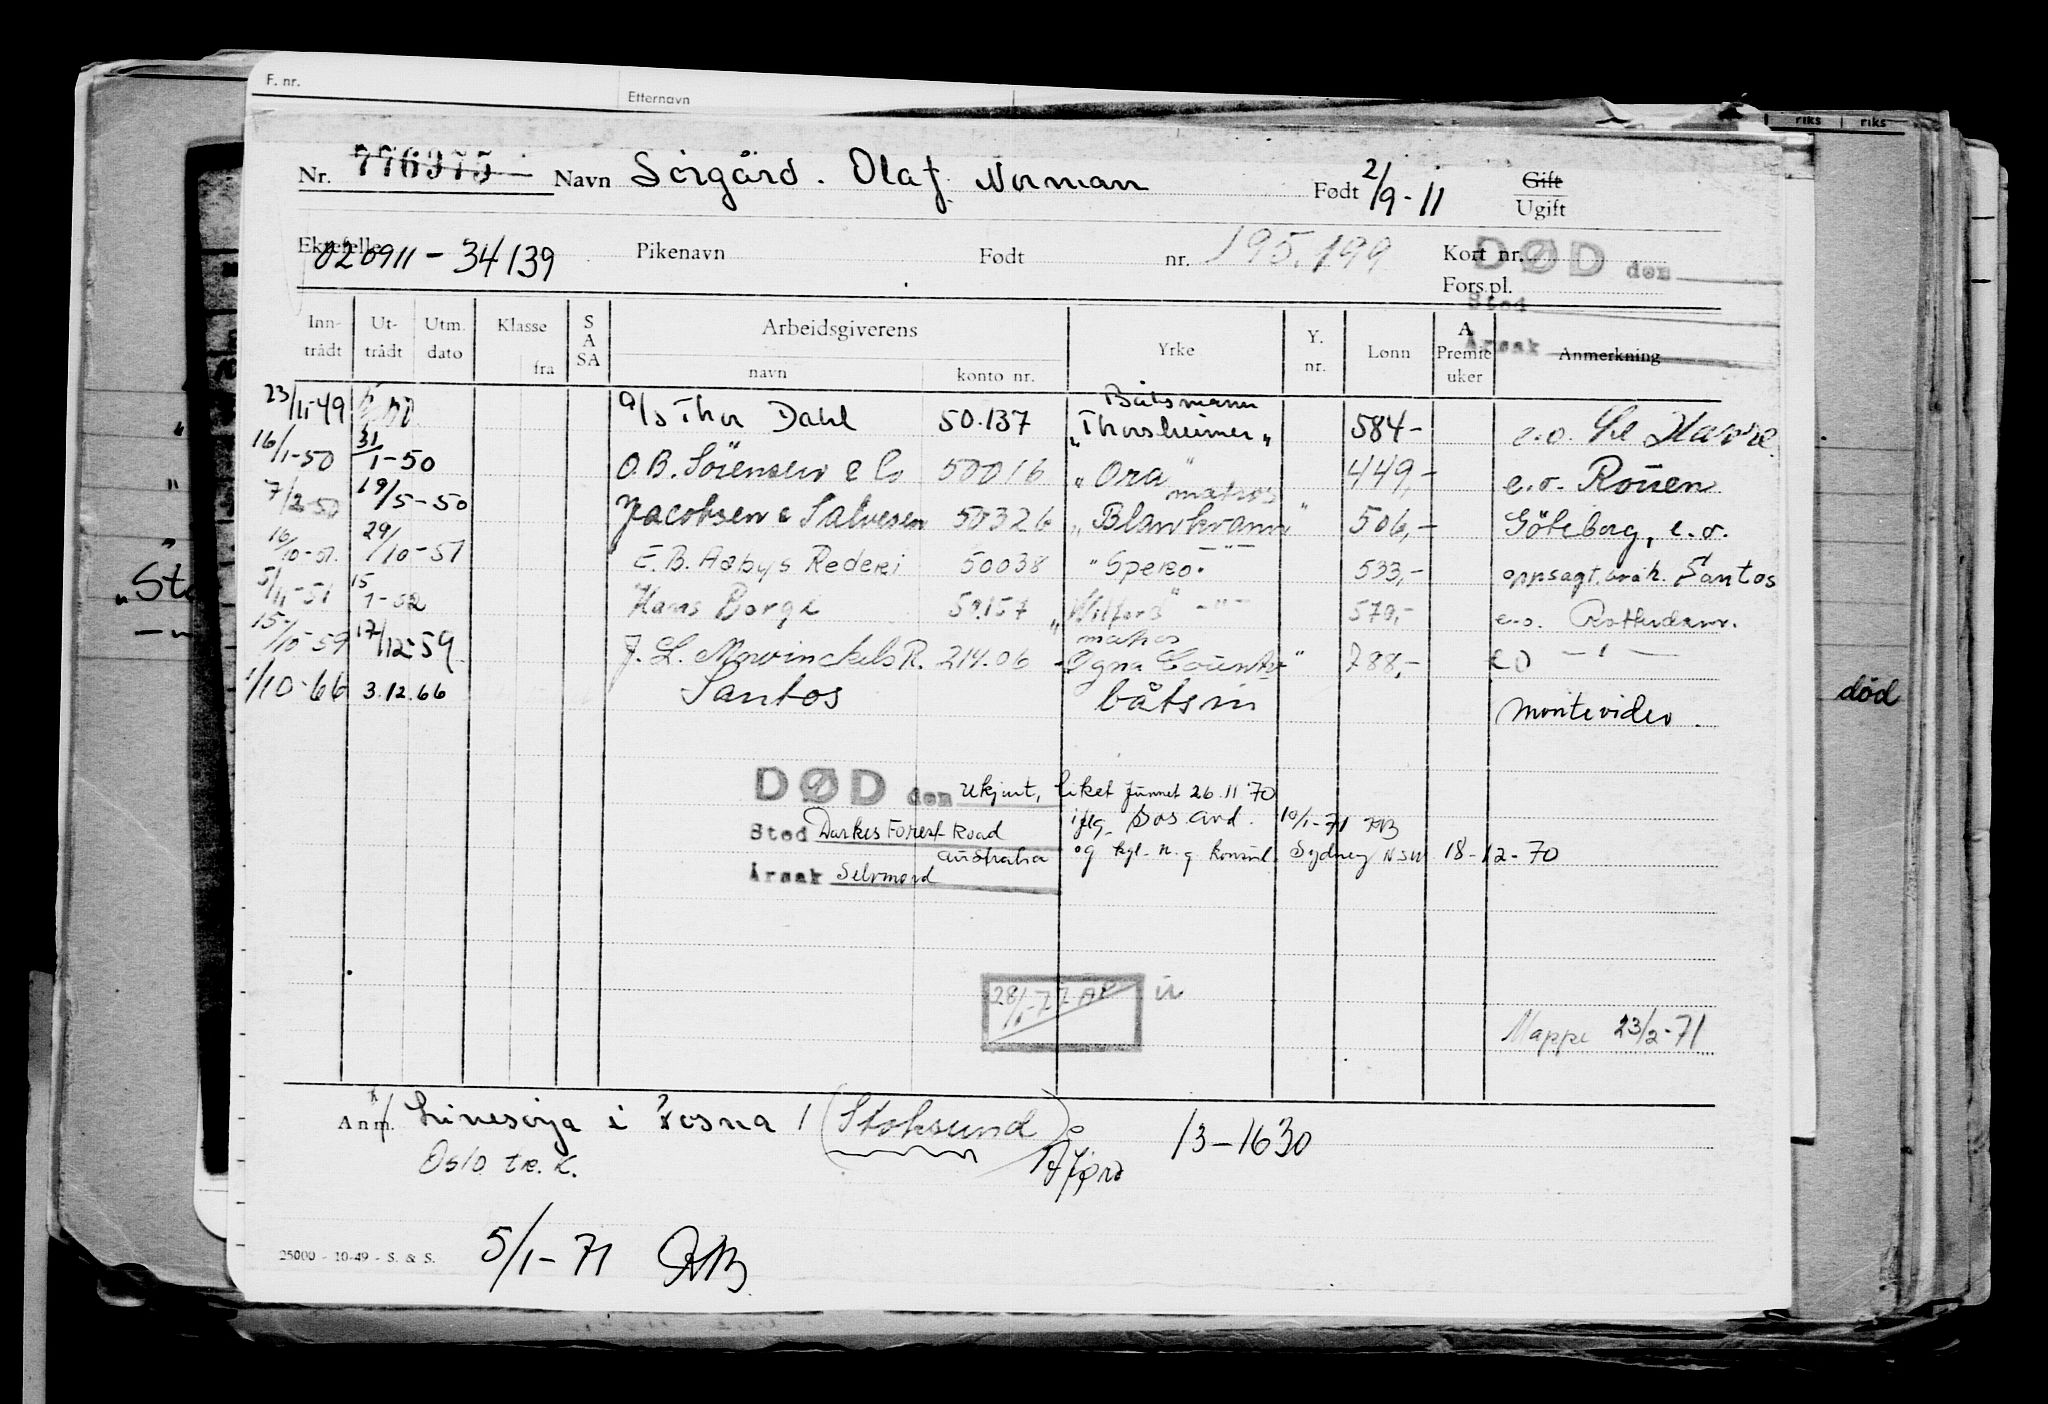 F. nr. Etternavn
riks riks
Nr. 776975 Navn Sørgård. Olaf Norman Født 2/9-11 Gift
Ugift
Ektefelle 020911-34139 Pikenavn Født nr. 195.199 Kort nr.
DØD den
Fors.pl.
Sted
Årsak
Inntrådt Uttrådt Utm. dato Klasse fra S A SA Arbeidsgiverens navn konto nr. Yrke Y. nr. Lønn A Premie uker Anmerkning
23/11-49 a/s Thor Dahl 50.137 Båtsmann "Thorsheimer" 584- e.o. Le Havre.
16/1-50 31/1-50 O.B. Sörensen & Co 50016 "Ora" 449,- e.o. Rouen
7/2-50 19/5-50 Jacobsen & Salvesen 50326 matros "Blankvann" 506,- Göteborg, e.o.
16/10-51 29/10-51 E.B. Aabys Rederi 50038 "Spero" -"- 533,- oppsagt Santos
5/11-51 15/1-52 Hans Borge 50157 -"- 579,- e.o. Rotterdam.
15/10-59 17/12-59 J.L. Mowinckels R. 214.06 matros "Ogna " 788,- eo -"-
1/10-66 3.12.66 Santos båtsm Montevideo.
død
DØD den ukjent, liket funnet 26.11 70
Sted Darkes Forest Road iflg. Sos avd. 10/1-71 AB
Australia og kgl. n. g. konsul. Sydney NSW 18-12-70
Årsak Selvmord
Mappe 23/2-71
Anm. Linesøya i Fosna / (Stoksund) 13-1630
Afjord
Oslo tr.k.
25000 - 10-49 - S. & S. 5/1-71 AB